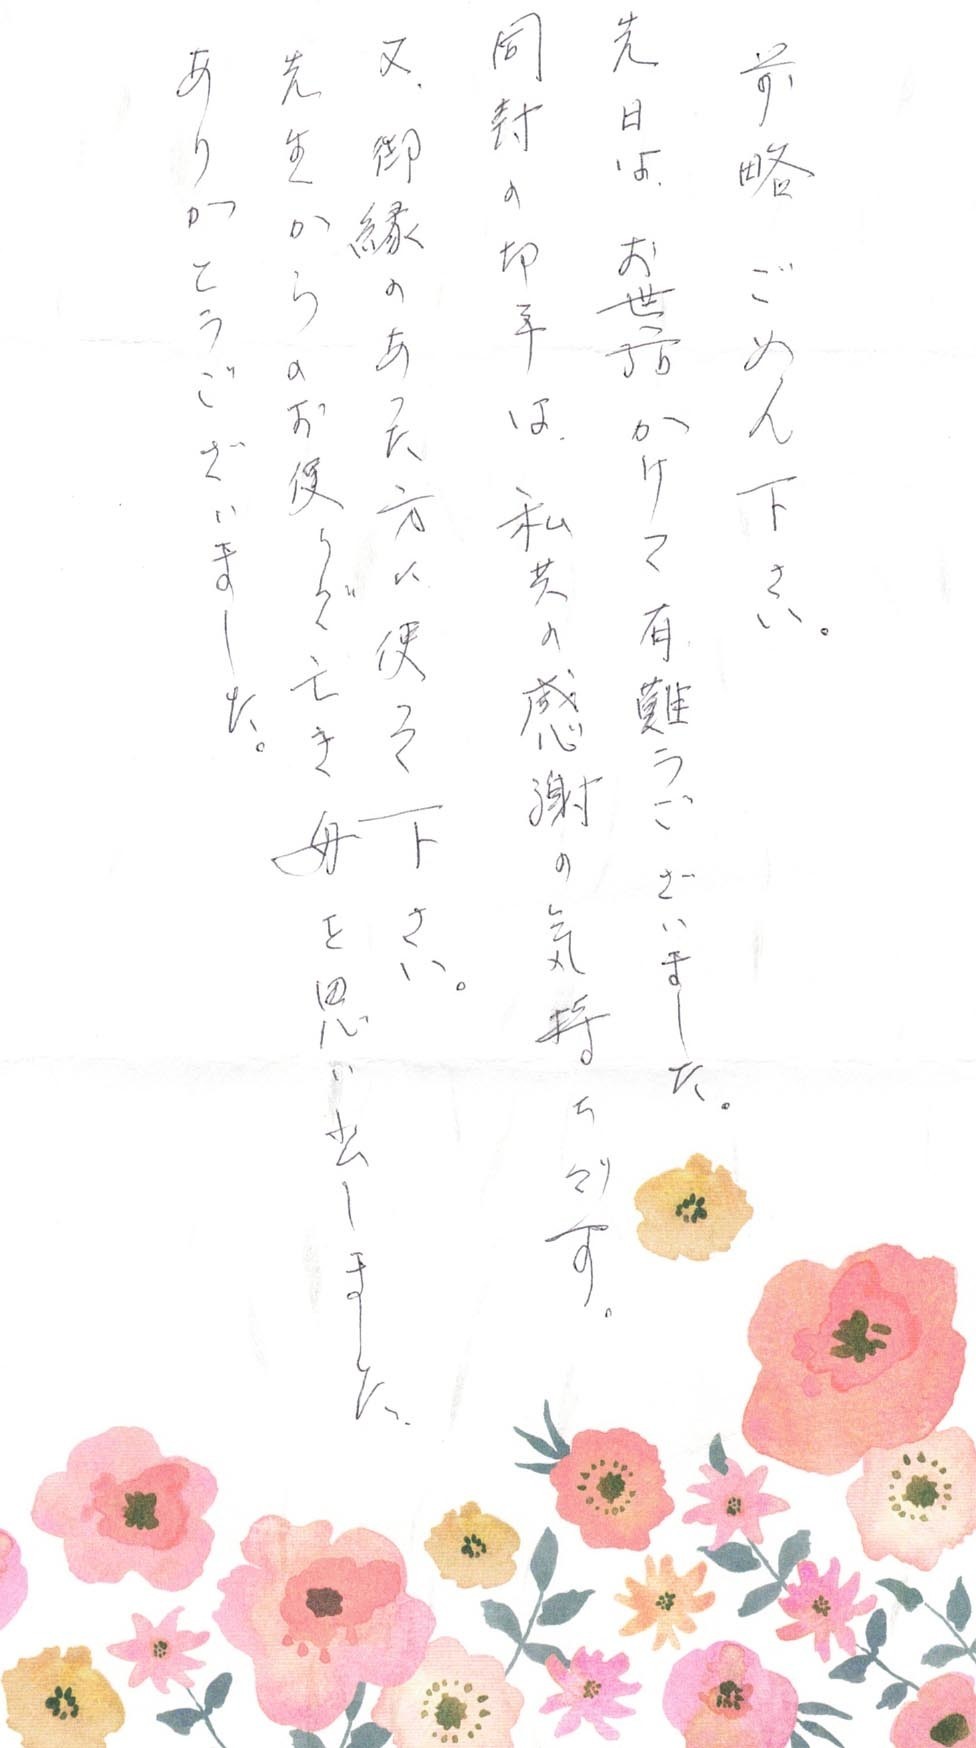 前略 ごめん下さい。
先日は、お世話かけて有難うございました。
同封の切手は、私共の感謝の気持ちです。
又、御縁のあった方に使って下さい。
先生からのお便りで亡き母を思い出しました。
ありがとうございました。